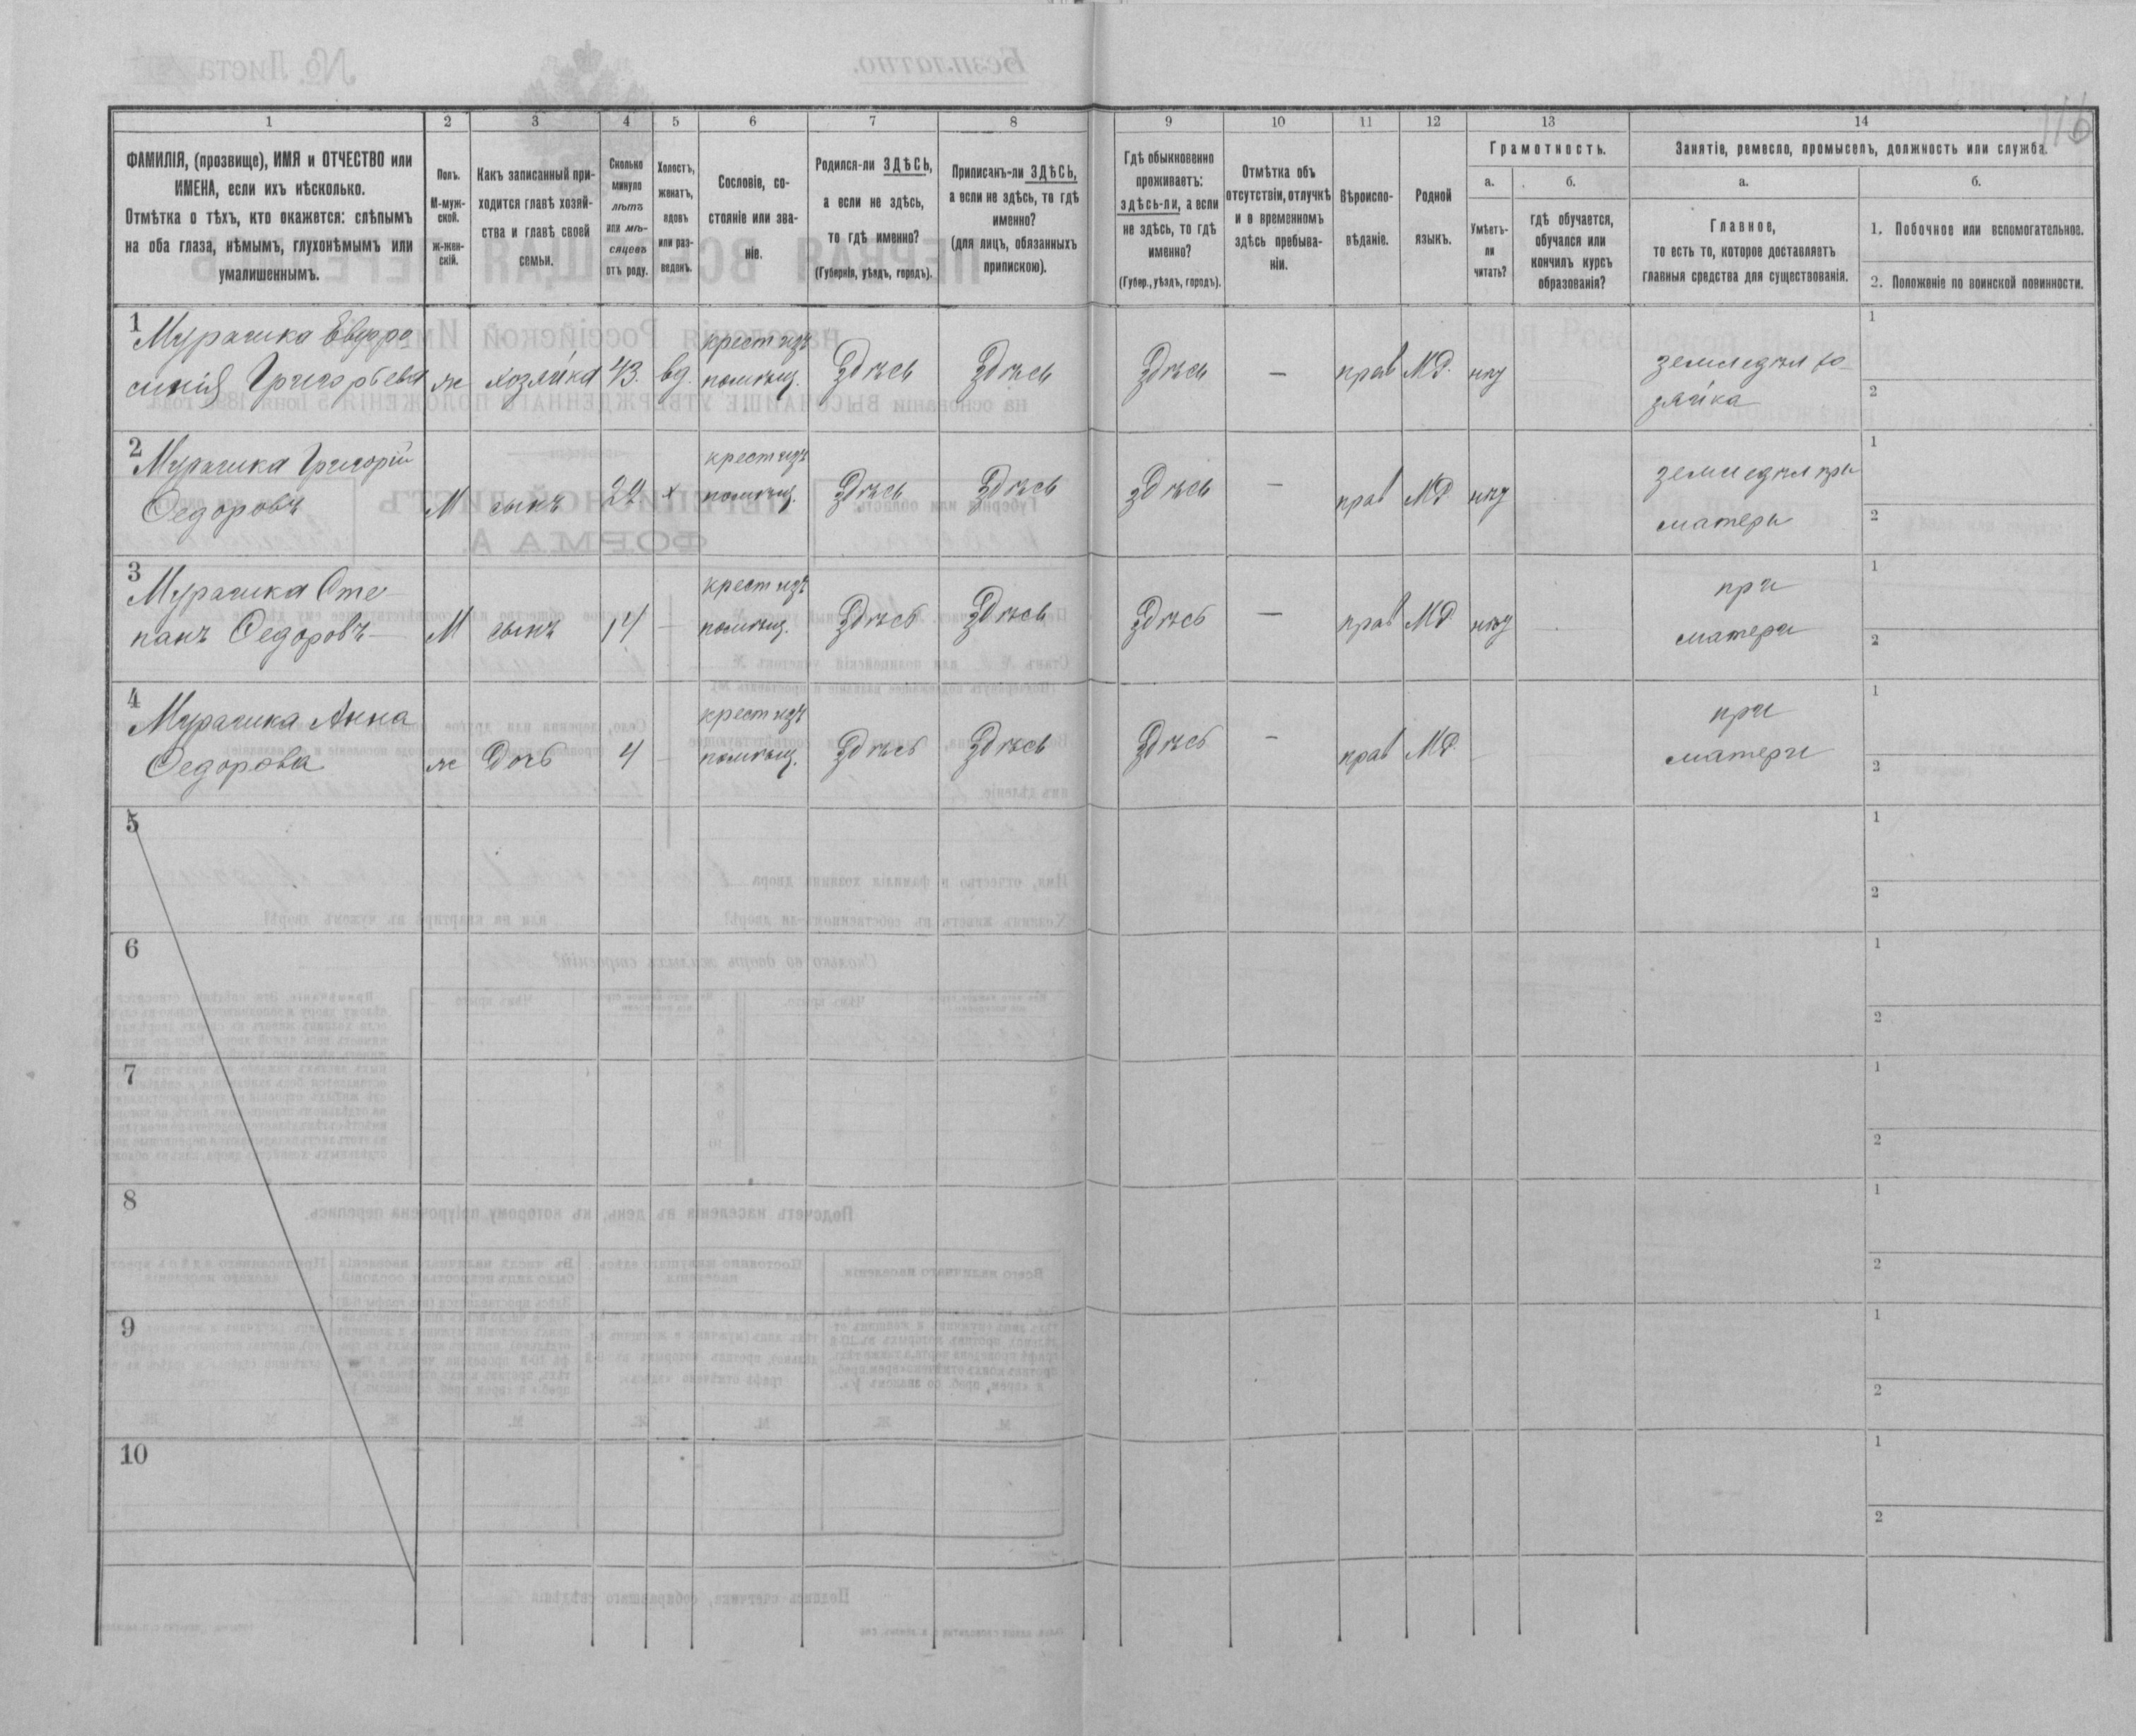 116
1 2 3 4 5 6 7 8 9 10 11 12 13 14
ФАМИЛІЯ, (прозвище), ИМЯ и ОТЧЕСТВО или
ИМЕНА, если ихъ нѣсколько.
Отмѣтка о тѣхъ, кто окажется: слѣпымъ
на оба глаза, нѣмымъ, глухонѣмымъ или
умалишеннымъ.
Полъ.
М-муж-
ской.
ж-жен-
скій.
Какъ записанный при-
ходится главѣ хозяй-
ства и главѣ своей
семьи.
Сколько
минуло
лѣтъ
или мѣ-
сяцевъ
отъ роду.
Холостъ,
женатъ,
вдовъ
или раз-
веденъ.
Сословіе, со-
стояніе или зва-
ніе.
Родился-ли ЗДѢСЬ,
а если не здѣсь,
то гдѣ именно?
(Губернія, уѣздъ, городъ).
Приписанъ-ли ЗДѢСЬ,
а если не здѣсь, то гдѣ
именно?
(для лицъ, обязанныхъ
припискою).
Гдѣ обыкновенно
проживаетъ:
здѣсь-ли, а если
не здѣсь, то гдѣ
именно?
(Губер., уѣздъ, городъ).
Отмѣтка объ
отсутствіи, отлучкѣ
и о временномъ
здѣсь пребыва-
ніи.
Вѣроиспо-
вѣданіе.
Родной
языкъ.
Грамотность.
а.
Умѣетъ-
ли
читать?
б.
гдѣ обучается,
обучался или
кончилъ курсъ
образованія?
Занятіе, ремесло, промыселъ, должность или служба.
а.
Главное,
то есть то, которое доставляетъ
главныя средства для существованія.
б.
1. Побочное или вспомогательное.
2. Положеніе по воинской повинности.
1
Евфро
синія Григорьева
ж хозяйка 43. вд.
крест изъ
помѣщ.
Здѣсь Здѣсь Здѣсь — прав МР. нѣу
земледѣл хо-
зяйка
1
2
2
Григорій
Федоровъ
М сынъ 22 х
крест изъ
помѣщ.
Здѣсь Здѣсь Здѣсь — прав МР нѣу
земледѣл при
матери
1
2
3
Сте-
панъ Федоровъ
М сынъ 14 —
крест изъ
помѣщ.
Здѣсь Здѣсь Здѣсь — прав МР нѣу
при
матери
1
2
4
Анна
Федорова
ж дочь 4 —
крест изъ
помѣщ.
Здѣсь Здѣсь Здѣсь — прав МР. —
при
матери
1
2
5
1
2
6
1
2
7
1
2
8
1
2
9
1
2
10
1
2